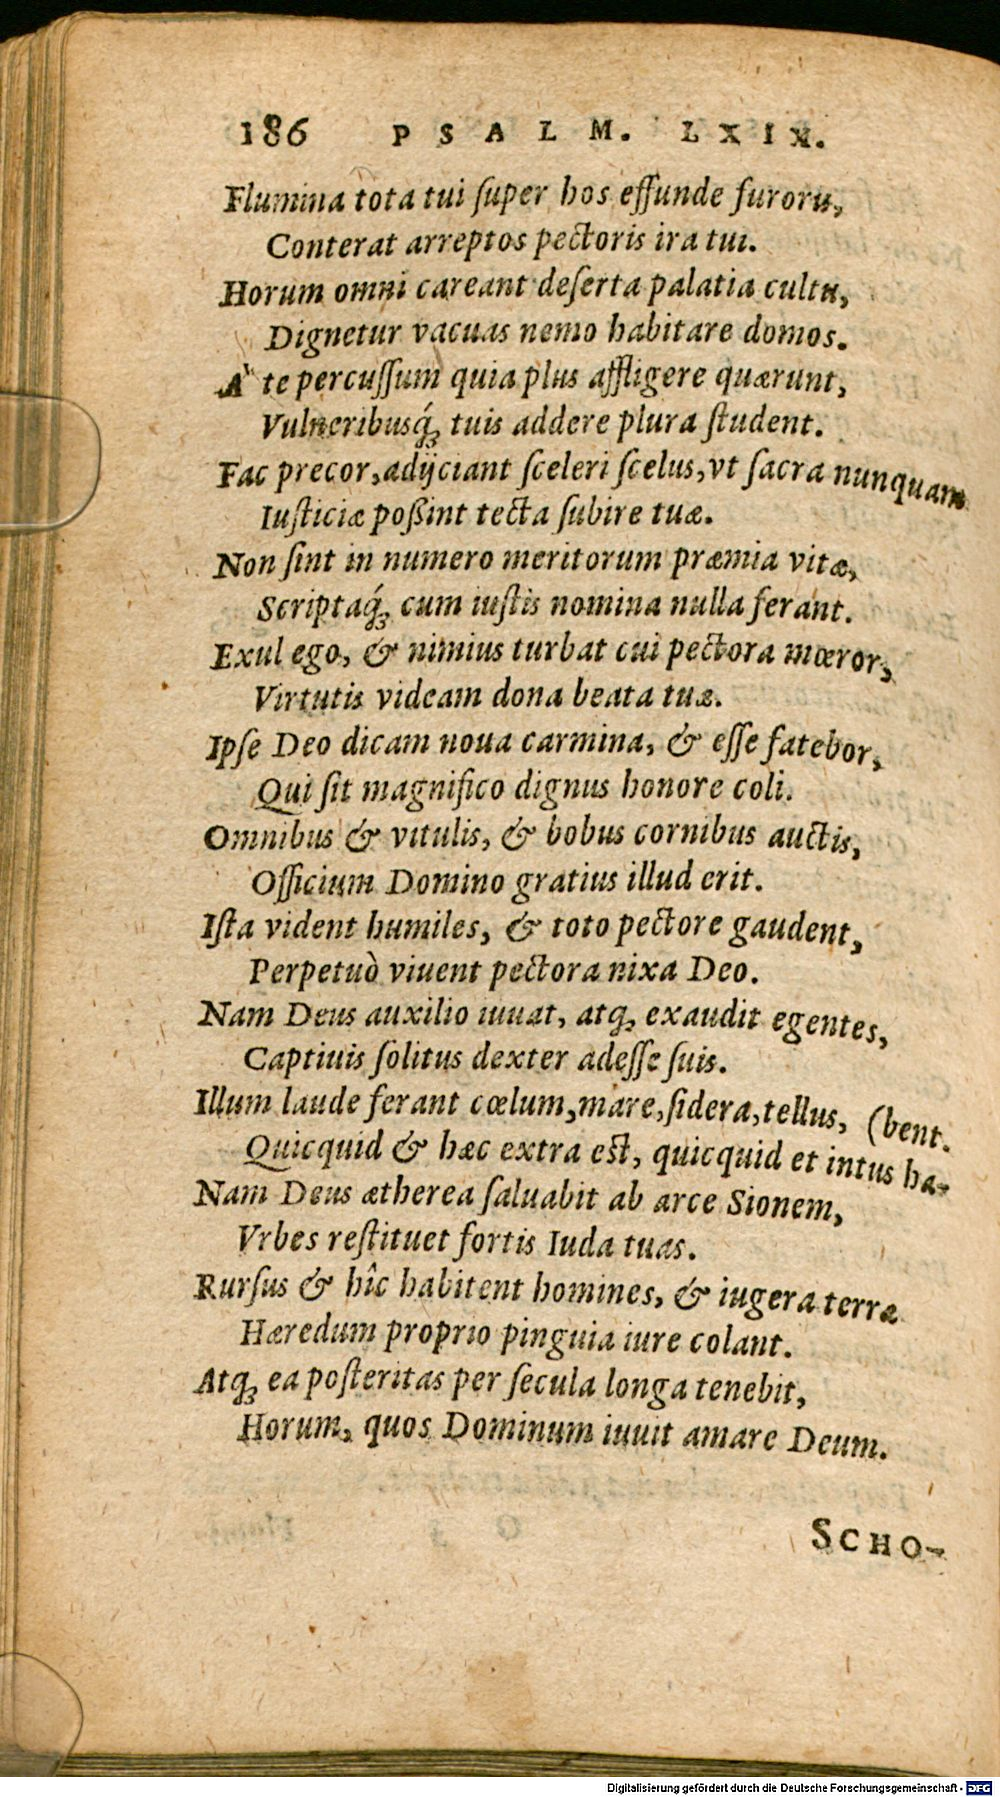 186 PSALM. LXIX.
Flumina tota tui ſuper hos effunde furoris,
Conterat arreptos pectoris ira tui.
Horum omni careant deſerta palatia cultu,
Dignetur vacuas nemo habitare domos.
A` te percuſſum quia plus affligere quærunt,
Vulneribusq́ꝫ tuis addere plura ſtudent.
Fac precor, adijciant ſceleri ſcelus, vt ſacra nunquam
Iuſticiæ poßint tecta ſubire tuæ.
Non ſint in numero meritorum præmia vitæ,
Scriptaq́ꝫ cum iuſtis nomina nulla ferant.
Exul ego, & nimius turbat cui pectora mœror,
Virtutis videam dona beata tuæ.
Ipſe Deo dicam noua carmina, & eſſe fatebor,
Qui ſit magnifico dignus honore coli.
Omnibus & vitulis, & bobus cornibus auctis,
Officium Domino gratius illud erit.
Iſta vident humiles, & toto pectore gaudent,
Perpetuò viuent pectora nixa Deo.
Nam Deus auxilio iuuat, atqꝫ exaudit egentes,
Captiuis ſolitus dexter adeſſe ſuis.
Illum laude ferant cœlum, mare, ſidera, tellus, (bent.
Quicquid & hæc extra eſt, quicquid et intus ha-
Nam Deus ætherea ſaluabit ab arce Sionem,
Vrbes reſtituet fortis Iuda tuas.
Rurſus & hîc habitent homines, & iugera terræ
Hæredum proprio pinguia iure colant.
Atqꝫ ea poſteritas per ſecula longa tenebit,
Horum, quos Dominum iuuit amare Deum.
SCHO-
Digitalisierung gefördert durch die Deutsche Forschungsgemeinschaft - DFG